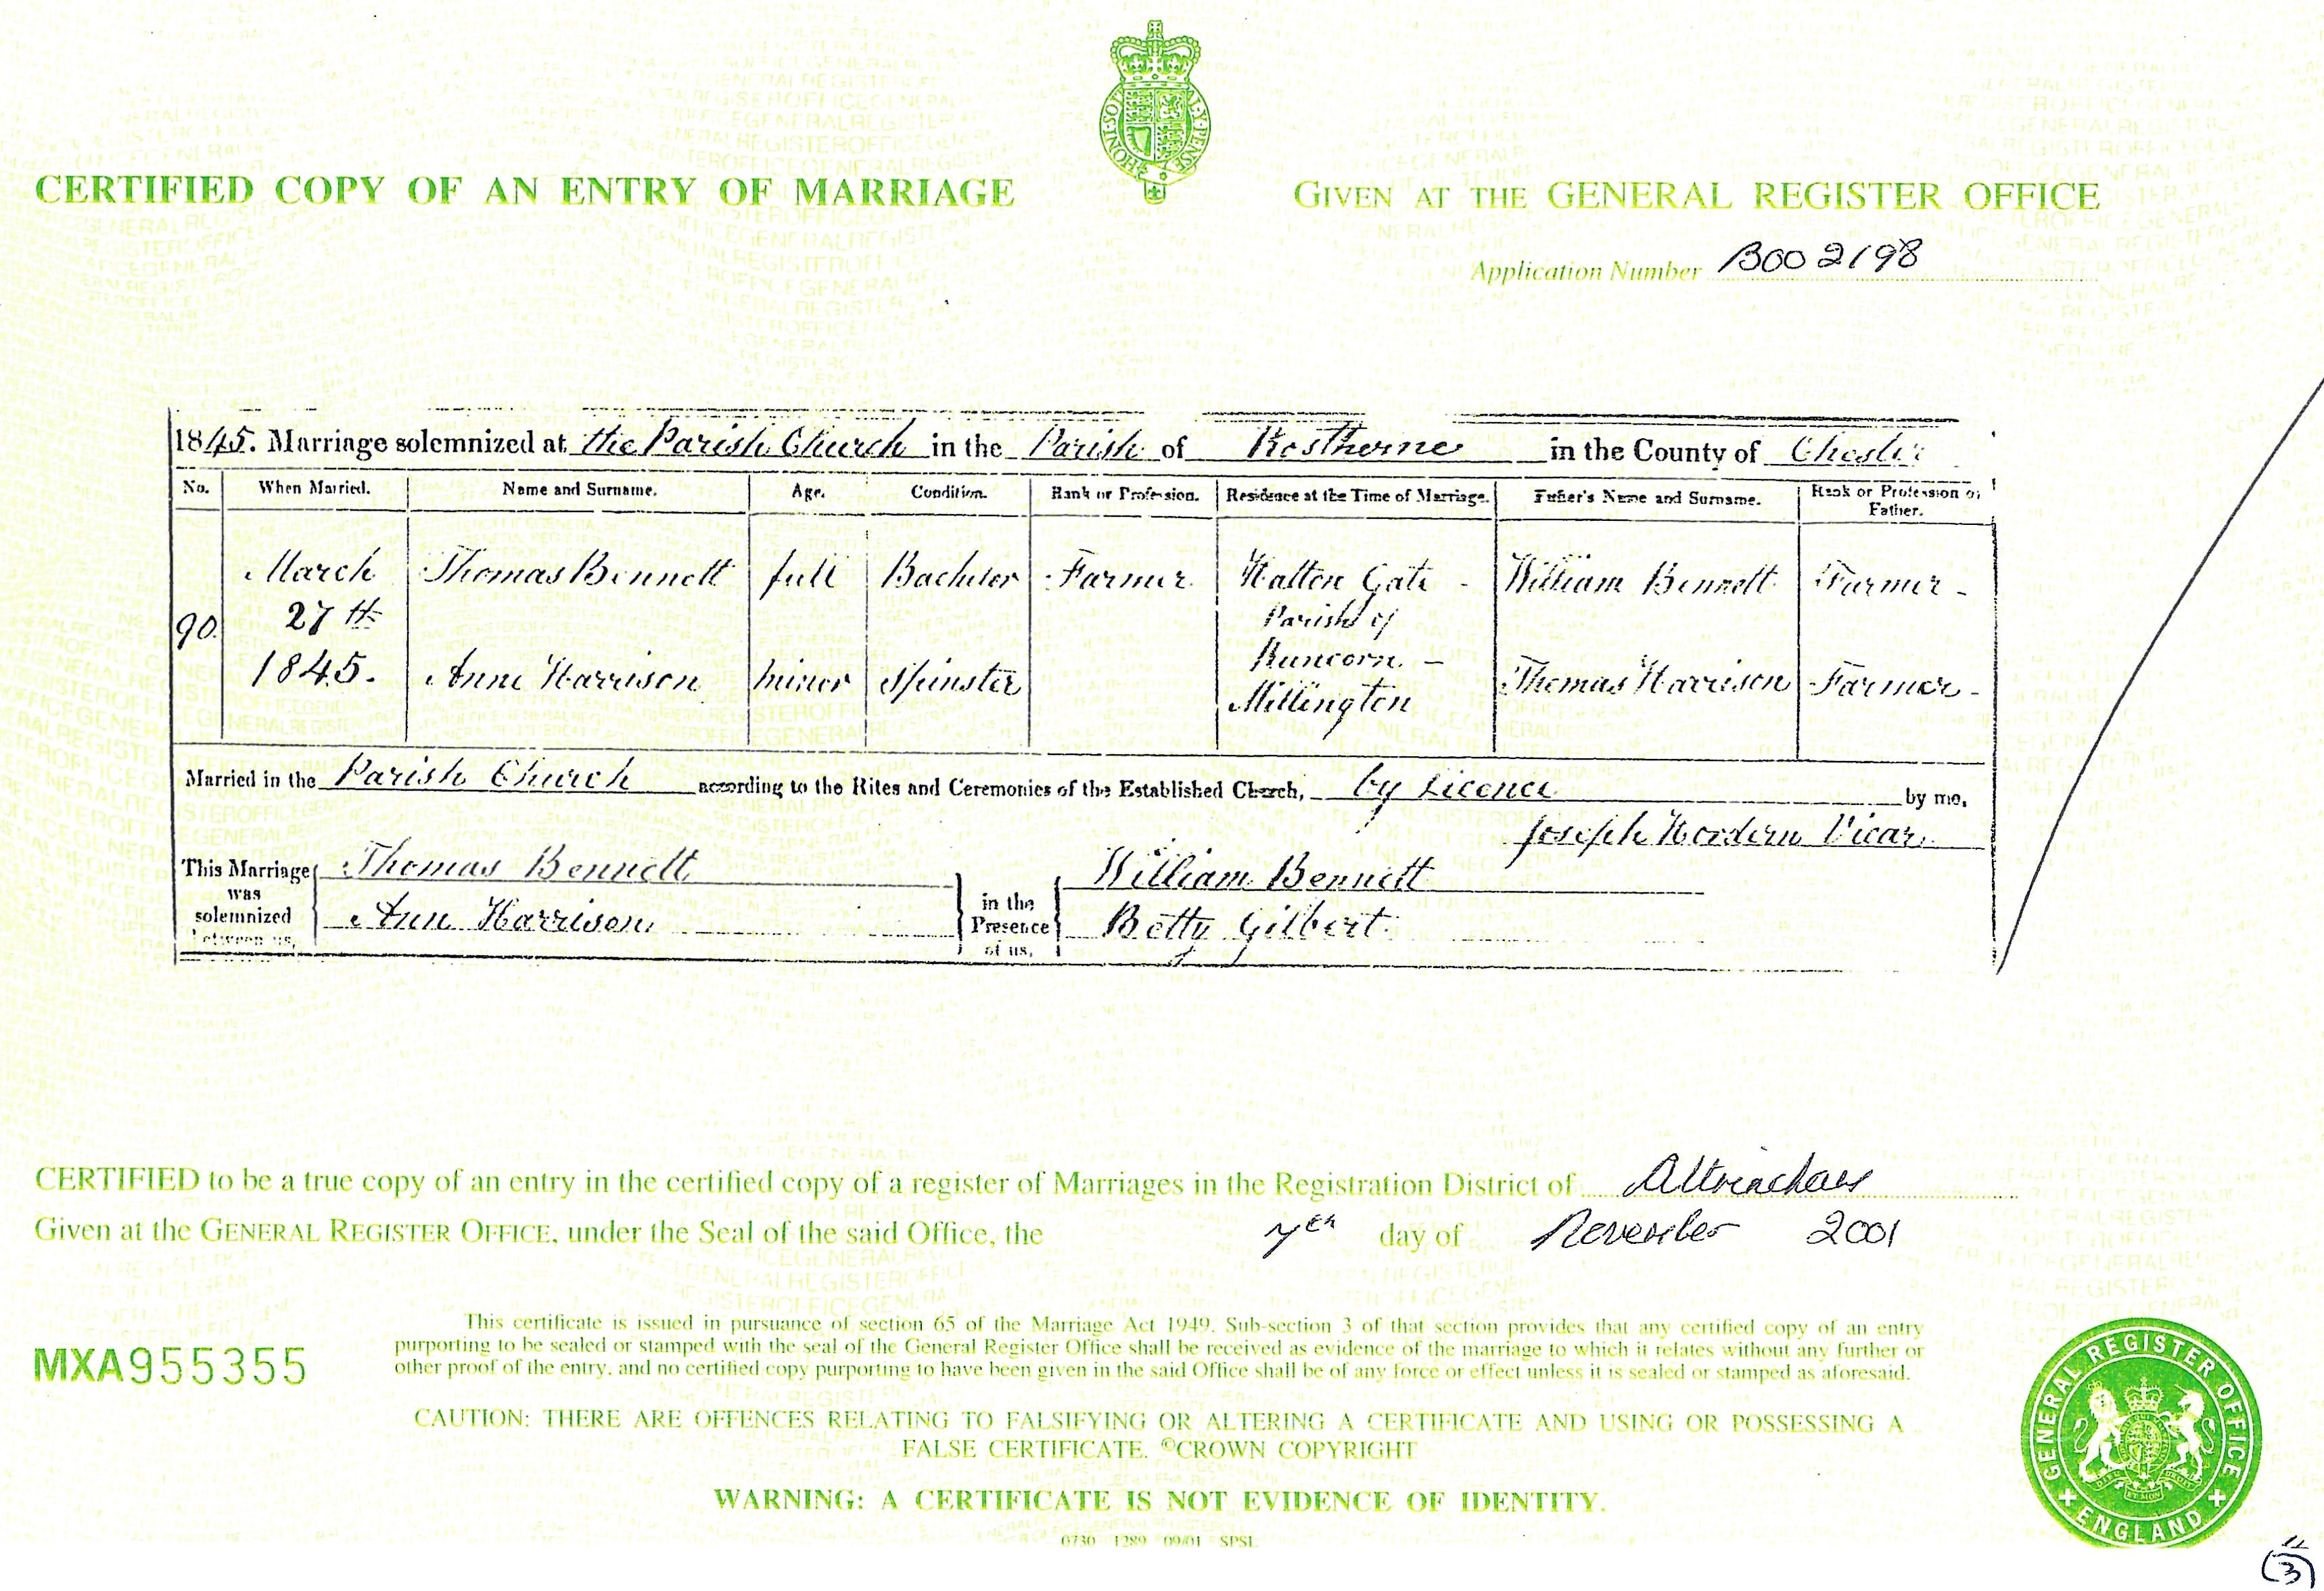 HONI·SOIT·QUI·MAL·Y·PENSE
CERTIFIED COPY OF AN ENTRY OF MARRIAGE
GIVEN AT THE GENERAL REGISTER OFFICE
Application Number B002198
1845. Marriage solemnized at the Parish Church in the Parish of Rosthorne in the County of Chester
No. When Married. Name and Surname. Age. Condition. Rank or Profession. Residence at the Time of Marriage. Father's Name and Surname. Rank or Profession of Father.
90. March 27th 1845.
Thomas Bennett full Bachelor Farmer Walton Gate - Parish of Runcorn. - William Bennett Farmer -
Anne Harrison minor Spinster Millington Thomas Harrison Farmer -
Married in the Parish Church according to the Rites and Ceremonies of the Established Church, by Licence by me,
Joseph Hordern Vicar
This Marriage was solemnized between us, Thomas Bennett
Ann Harrison
in the Presence of us, William Bennett
Betty Gilbert
CERTIFIED to be a true copy of an entry in the certified copy of a register of Marriages in the Registration District of Altrincham
Given at the GENERAL REGISTER OFFICE, under the Seal of the said Office, the 7th day of November 2001
MXA955355
This certificate is issued in pursuance of section 65 of the Marriage Act 1949. Sub-section 3 of that section provides that any certified copy of an entry
purporting to be sealed or stamped with the seal of the General Register Office shall be received as evidence of the marriage to which it relates without any further or
other proof of the entry, and no certified copy purporting to have been given in the said Office shall be of any force or effect unless it is sealed or stamped as aforesaid.
CAUTION: THERE ARE OFFENCES RELATING TO FALSIFYING OR ALTERING A CERTIFICATE AND USING OR POSSESSING A
FALSE CERTIFICATE. ©CROWN COPYRIGHT
WARNING: A CERTIFICATE IS NOT EVIDENCE OF IDENTITY.
0730 1289 09/01 SPSL
GENERAL REGISTER OFFICE
ENGLAND